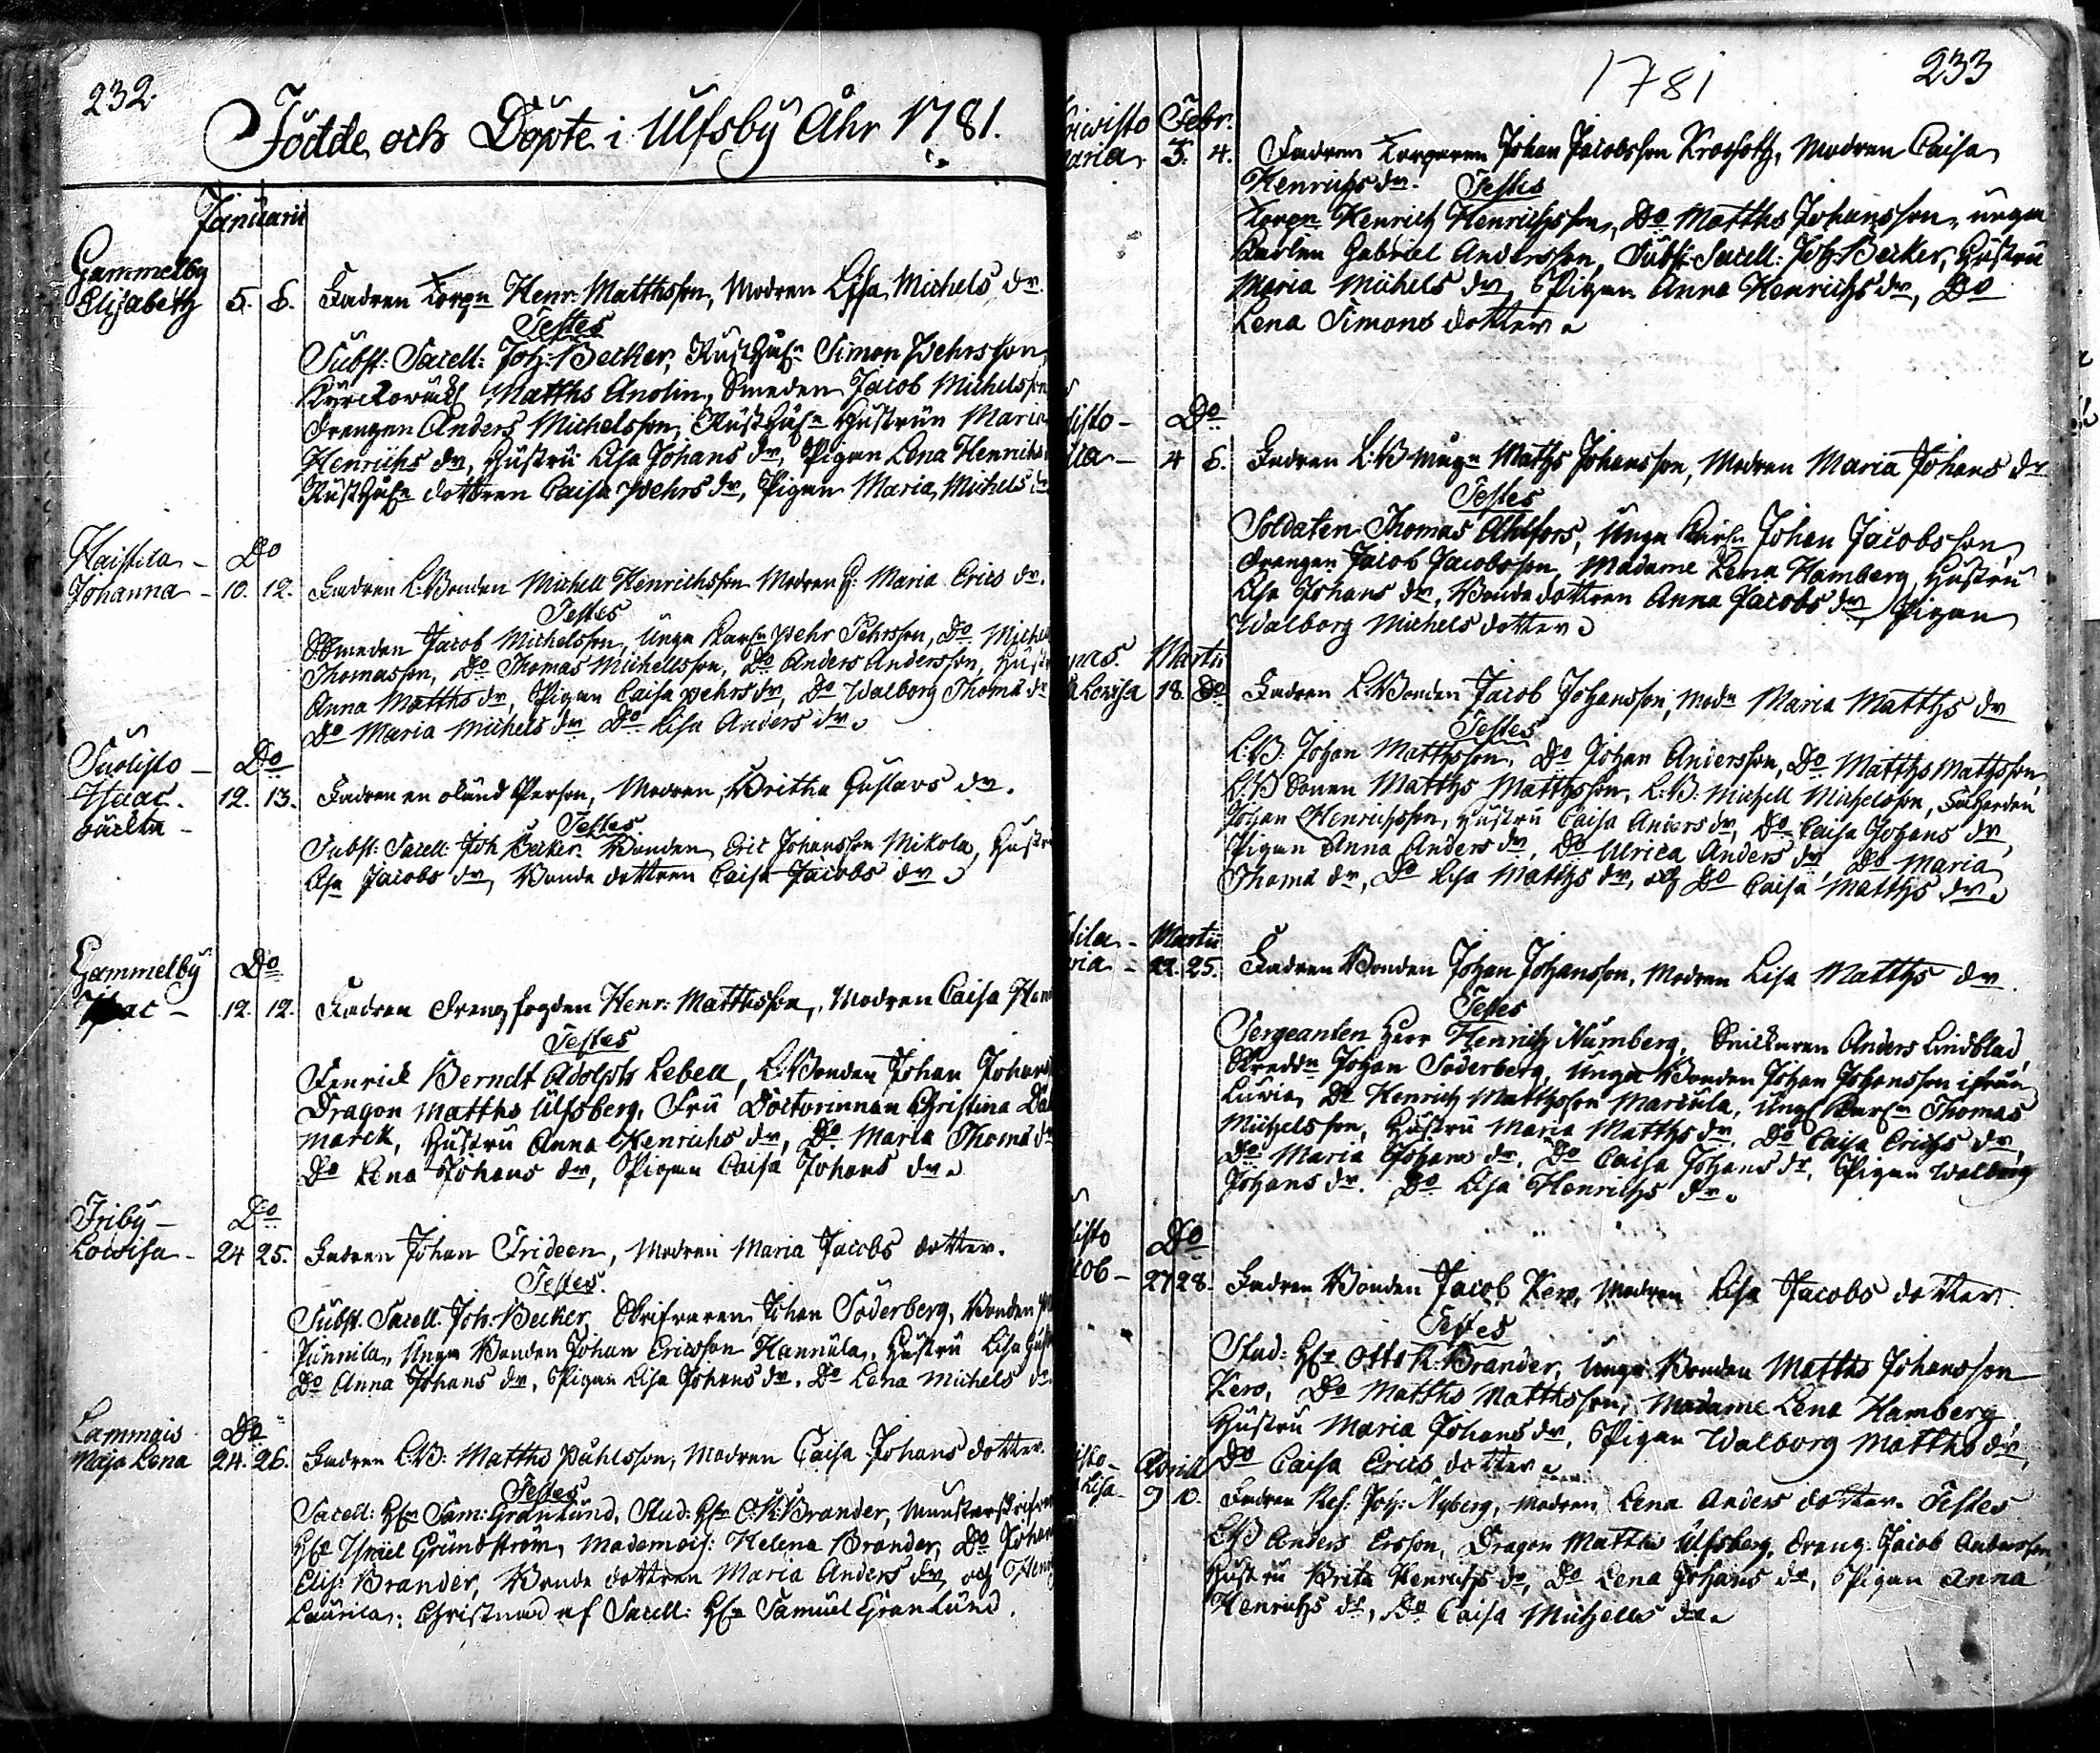 232.
Födde och Döpte i Ulfsby Åhr 1781.
Januarii
Gammelby
Elisabeth 5. 6. Fadren Torpn Henr: Matthsson, Modren Lisa Michels dr.
Testes
Subst: Sacell: Joh: Becker, Rusth: Simon Pehrsson,
Matths Anolin, Smeden Jacob Michelsson
drengen Anders Michelsson, Hustrun Maria
Henrichs dr, Hustru Lisa Johans dr, Pigan Lena Henrichs
dottren Caisa Pehrs dr, Pigan Maria Michels dr
Haistila - Do
Johanna - 10. 12. Fadren L:Bonden Michell Henrichsson Modren H: Maria Erics dr.
Testes
Smeden Jacob Michelsson, Unga Karln Pehr Pehrsson, Do Michel
Thomasson, Do Thomas Michellsson, Do Anders Andersson, Hustru
Anna Matths dr, Pigan Caisa Pehrs dr, Do Walborg Thoma dr
Do Maria Michels dr Do Lisa Anders dr.
Suolisto - Do
Isaac. 12. 13. Fadren en okänd Person, Modren, Britha Gustavs dr.
oäckta -
Testes
Subst: Sacell: Joh Becker. Bonden Eric Johansson Mikola, Hustru
Lisa Jacobs dr, Bonde dottren Caisa Jacobs dr.
Gammelby Do
Isaac - 12. 12. Fadren Drengfogden Henr: Matthsson, Modren Caisa Hen
Testes
Fenrick Berndt Adolph Lebell, L:Bonden Johan Johans
Dragon Matths Ulfsberg, Fru Doctorinnan Christina
marck, Hustru Anna Henrichs dr, Do Maria Thoma dr
Do Lena Johans dr, Pigan Caisa Johans dr.
Friby - Do
Lowisa - 24 25. Fadren Johan Frideen, Modren Maria Jacobs dotter.
Testes.
Subst. Sacell. Joh: Becker, Johan Söderberg, Bonden
Junnila, Unga Bonden Johan Ericsson Hannula, Hustru Lisa
Do Anna Johans dr, Pigan Lisa Johans dr. Do Lena Michels dr.
Lammais Do
Maja Lena 24. 26. Fadren L:B: Matths Påhlsson, Modren Caisa Johans dotter.
Testes
Sacell: Hr Sam: Granlund, Stud: Hr O:R: Brander,
Hr Israel Grundström, Mademois: Helena Brander, Do Johan
Elis: Brander, Bonde dottren Maria Anders dr, och
Laurila: Christnad af Sacell: Hr Samuel Granlund.
1781 233
Febr.
aria. 3. 4. Fadren Torparen Johan Jacobsson, Modren Caisa
Henrichs dr. Testes
Torpn Henrich Henrichsson, Do Matths Johansson, unga
Karlen Gabriel Andersson, Subst: Sacell: Joh: Becker, Hustru
Maria Michels dr, Pigan Anna Henrichs dr, Do
Lena Simons dotter.
listo - Do
- 4 6. Fadren L:B Maths Johansson, Modren Maria Johans dr
Testes
Soldaten Thomas Ahlfors, Unga Karln Johan Jacobsson,
drengen Jacob Jacobsson, Madame Lena Hamberg, Hustru
Lisa Johans dr, Bonde dottren Anna Jacobs dr, Pigan
Walborg Michels dotter.
Martii
Lovisa 18. Do Fadren L:Bonden Jacob Johansson, Modn Maria Matths dr
Testes
L:B: Johan Matthsson, Do Johan Andersson, Do Matths Mathsson,
L:B Sonen Matths Matthsson, L:B: Michell Michelsson,
Johan Henrichsson, Hustru Caisa Anders dr, Do Caisa Johans dr,
Pigan Anna Anders dr, Do Ulrica Anders dr, Do Maria
Thoma dr, Do Lisa Matths dr, och Do Caisa Matths dr.
tila - Martii
ria - 22. 25. Fadren Bonden Johan Johansson, Modren Lisa Matths dr.
Testes
Sergeanten Herr Henrich Numberg, Snickaren Anders Lindblad,
Johan Söderberg, Unga Bonden Johan Johansson ifrån
Do Henrich Matthsson Marcula, Unga Karln Thomas
Michelsson, Hustru Maria Matths dr, Do Caisa Erichs dr,
Do Maria Johans dr, Do Caisa Johans dr, Pigan Walborg
Johans dr. Do Lisa Henrichs dr.
listo Do
cob - 27 28. Fadren Bonden Jacob Kero, Modren Lisa Jacobs dotter.
Testes
Stud: Hr Otto R: Brander, Unga Bonden Matths Johansson
Kero, Do Matths Matthsson, Madame Lena Hamberg,
Hustru Maria Johans dr, Pigan Walborg Matths dr,
Do Caisa Erics dotter.
Aprill
Lisa 9 10. Fadren Ref: Joh: Nyberg, Modren Lena Anders dotter. Testes
LB Anders Ersson, Dragon Matths Ulfsberg, dreng: Jacob Andersson
Hustru Brita Henrichs dr, Do Lena Johans dr, Pigan Anna
Henrichs dr, Do Caisa Michells dr.